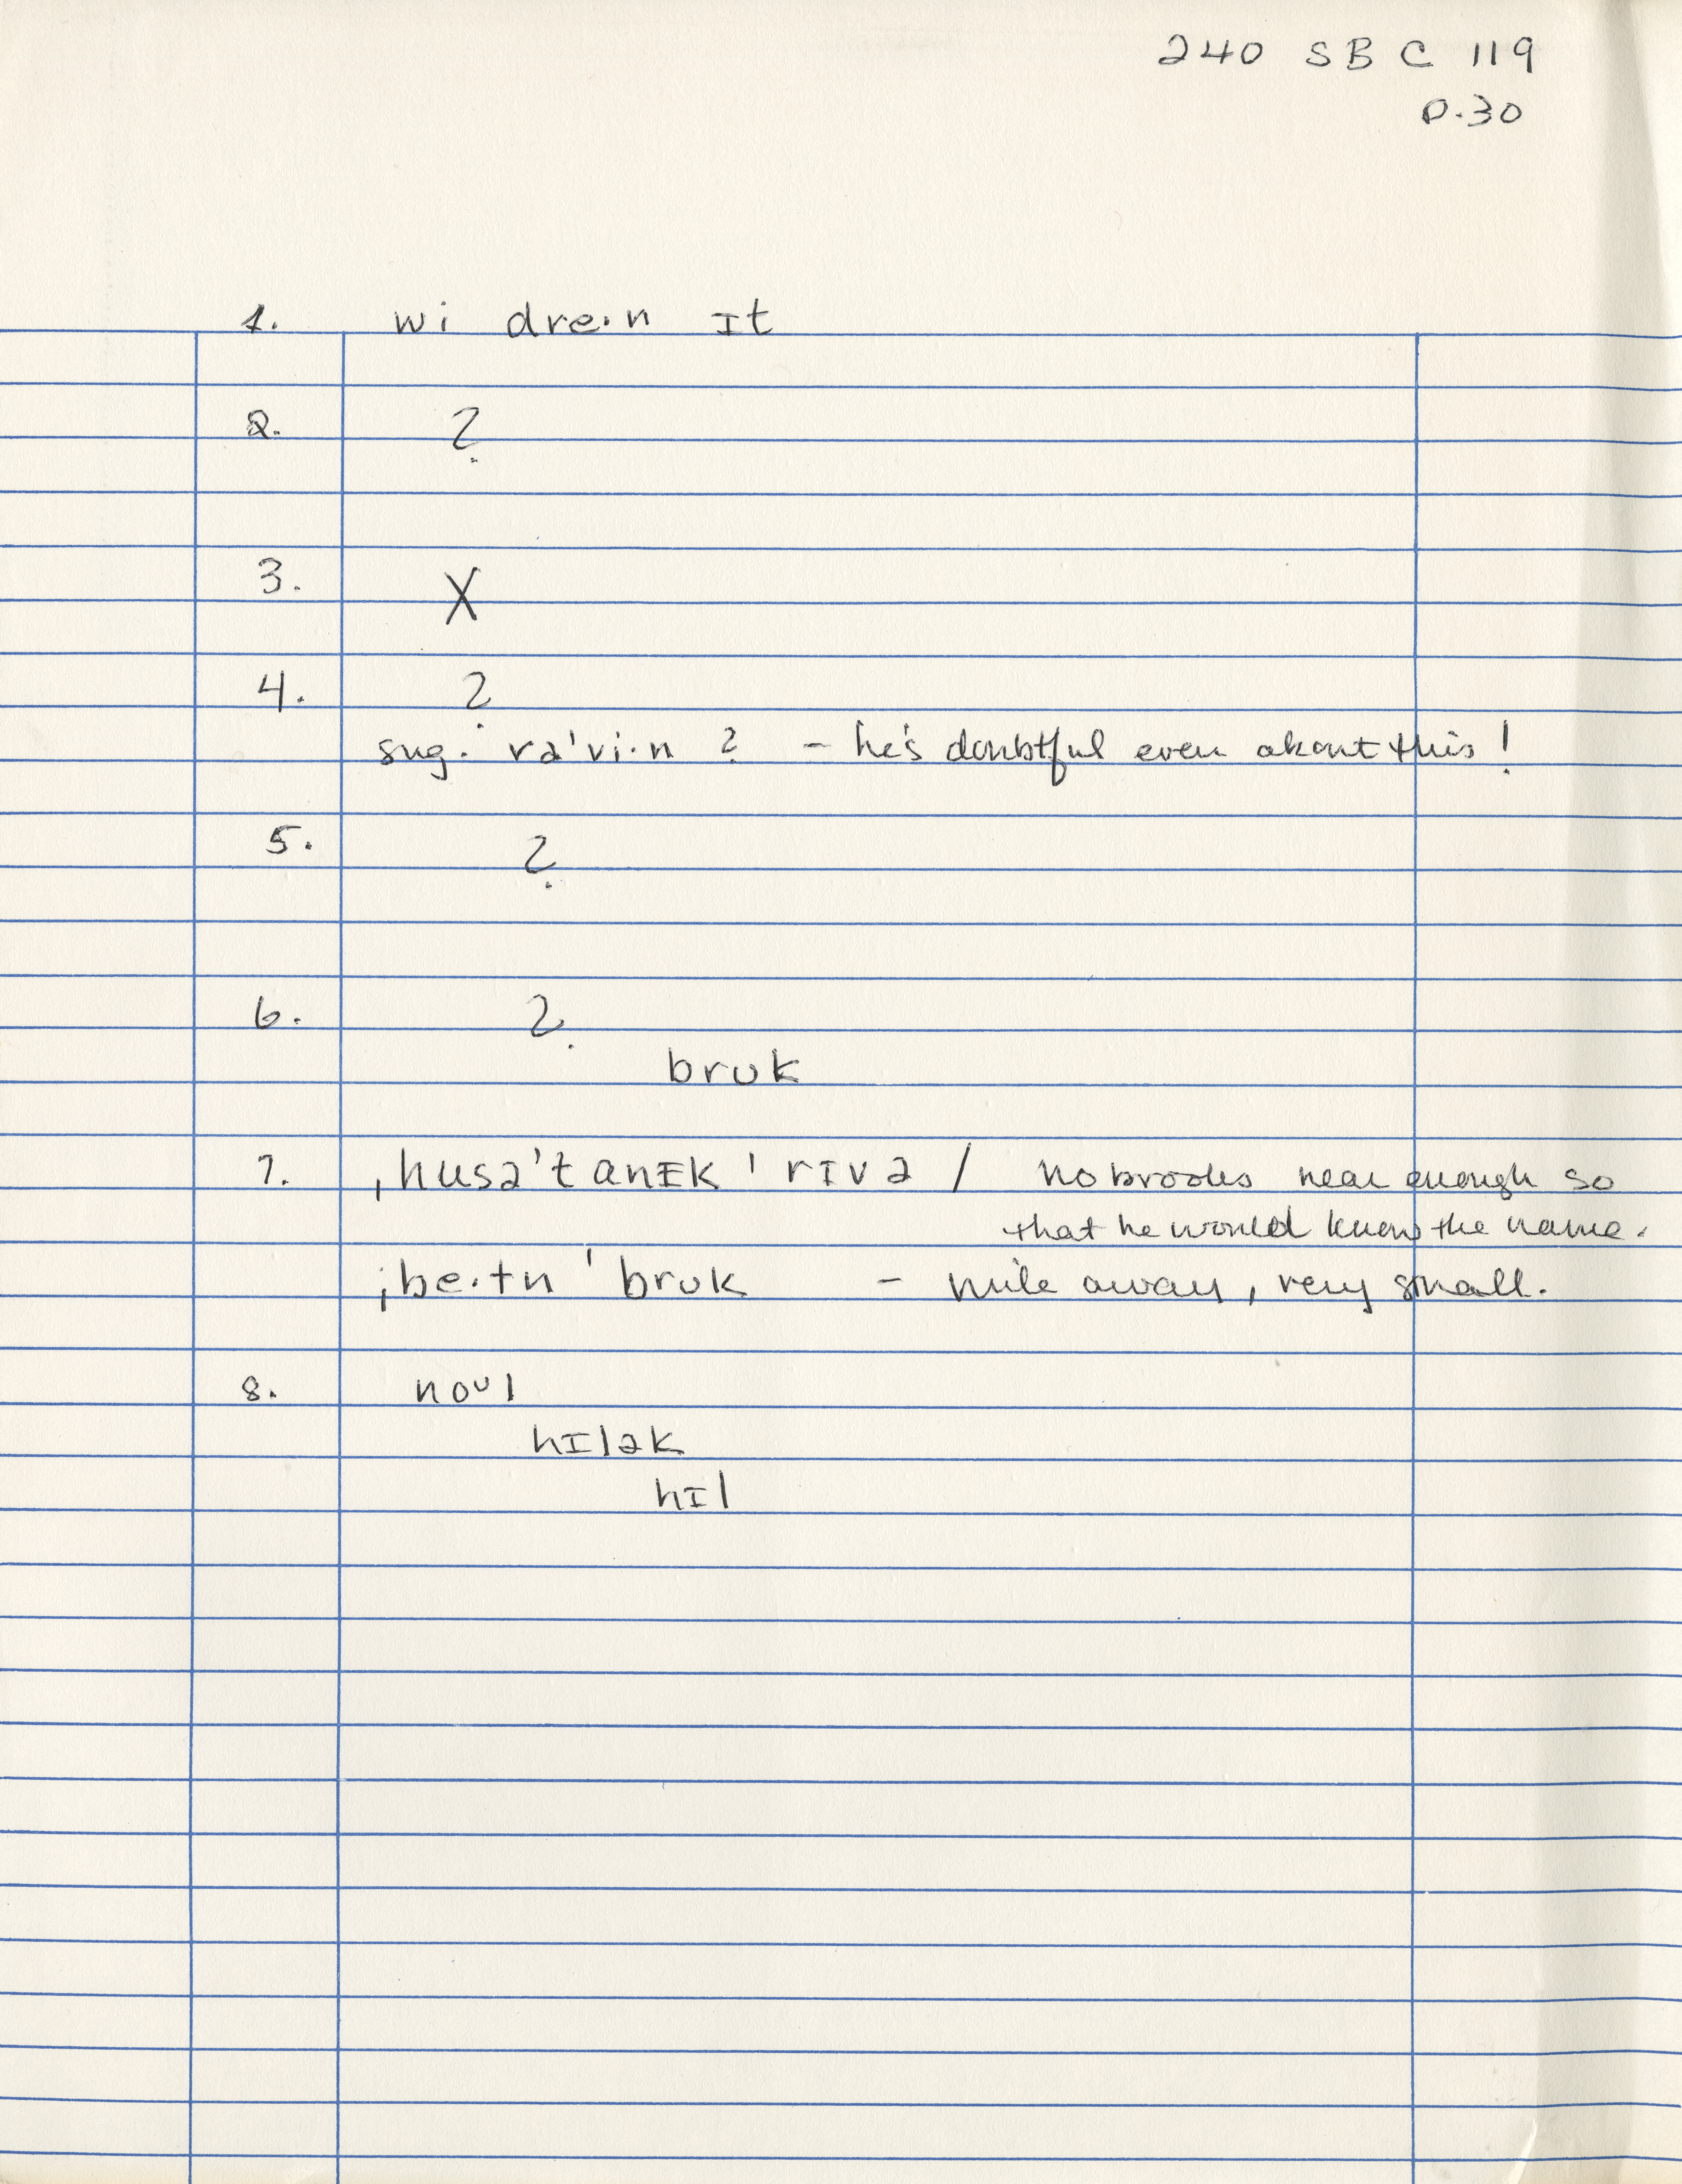 240 SBC 119
p.30
1. wi dre·n ɪt
2. ?
3. X
4. ?
sug. rə'vi·n ? – he's doubtful even about this!
5. ?
6. ?
brʊk
7. ˌhusə'tanɪk 'rɪvə / no brooks near enough so
that he would know the name.
ˌbe·tn 'brʊk – mile away, very small.
8. noᴜl
hɪlək
hɪl